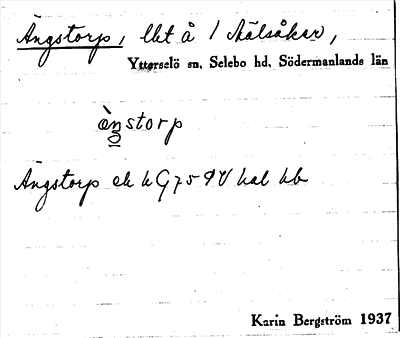 Ängstorp, lht å / Mälsåker,
Ytterselö sn, Selebo hd, Södermanlands län
ängstorp
Ängstorp ek k G 75 IV hal kb
Karin Bergström 1937